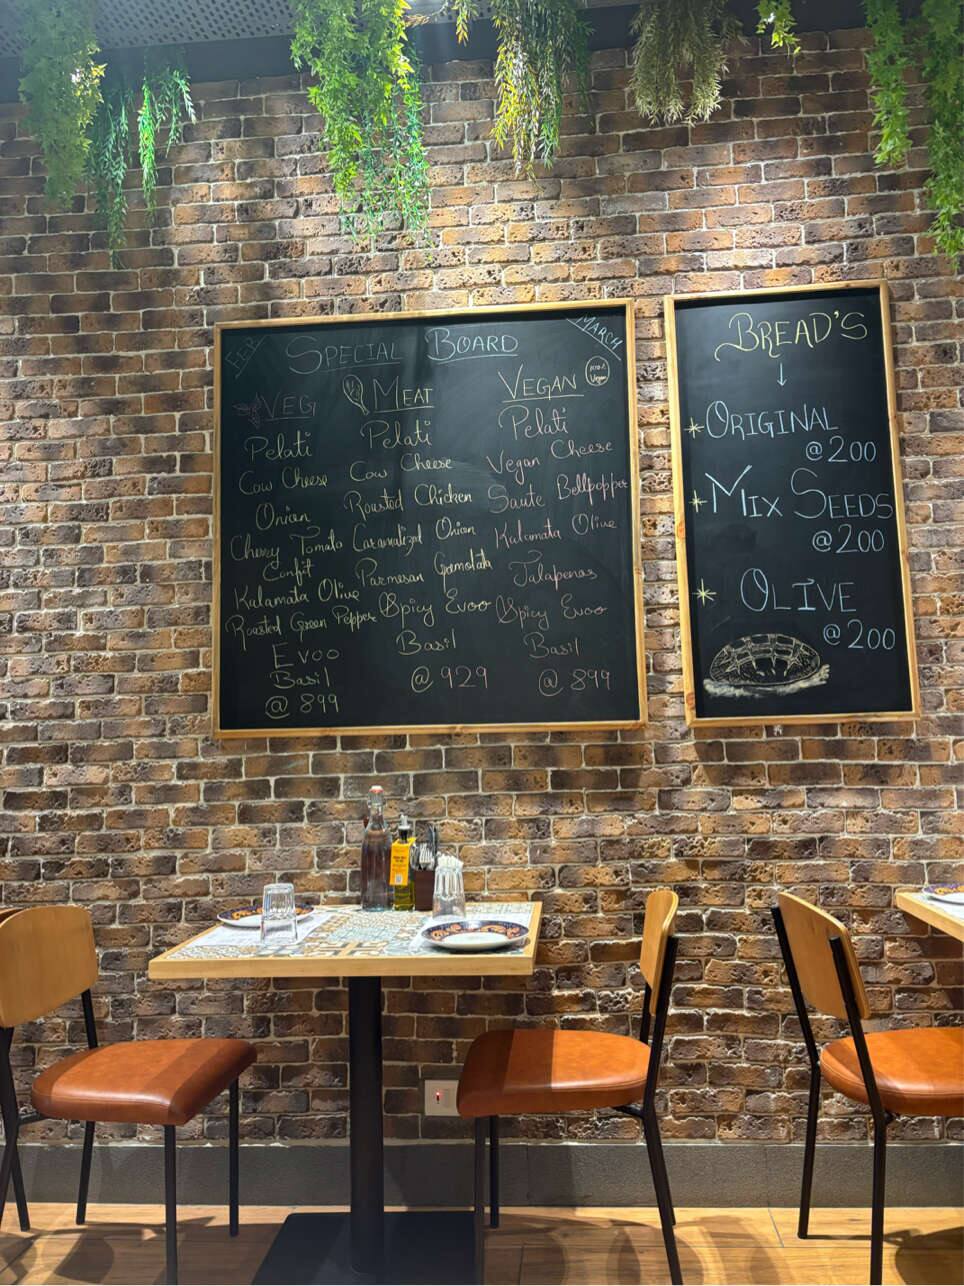 FEB
SPECIAL BOARD
MARCH
VEG
Pelati
Cow Cheese
Onion
Cherry Tomato
Confit
Kalamata Olive
Roasted Green Pepper
Evoo
Basil
@ 899
MEAT
Pelati
Cow Cheese
Roasted Chicken
Caramalized Onion
Parmesan Gremolata
Spicy Evoo
Basil
@ 929
VEGAN
Vegan
Pelati
Vegan Cheese
Saute Bellpepper
Kalamata Olive
Jalapenos
Spicy Evoo
Basil
@ 899
BREAD'S
ORIGINAL
@200
MIX SEEDS
@200
OLIVE
@200